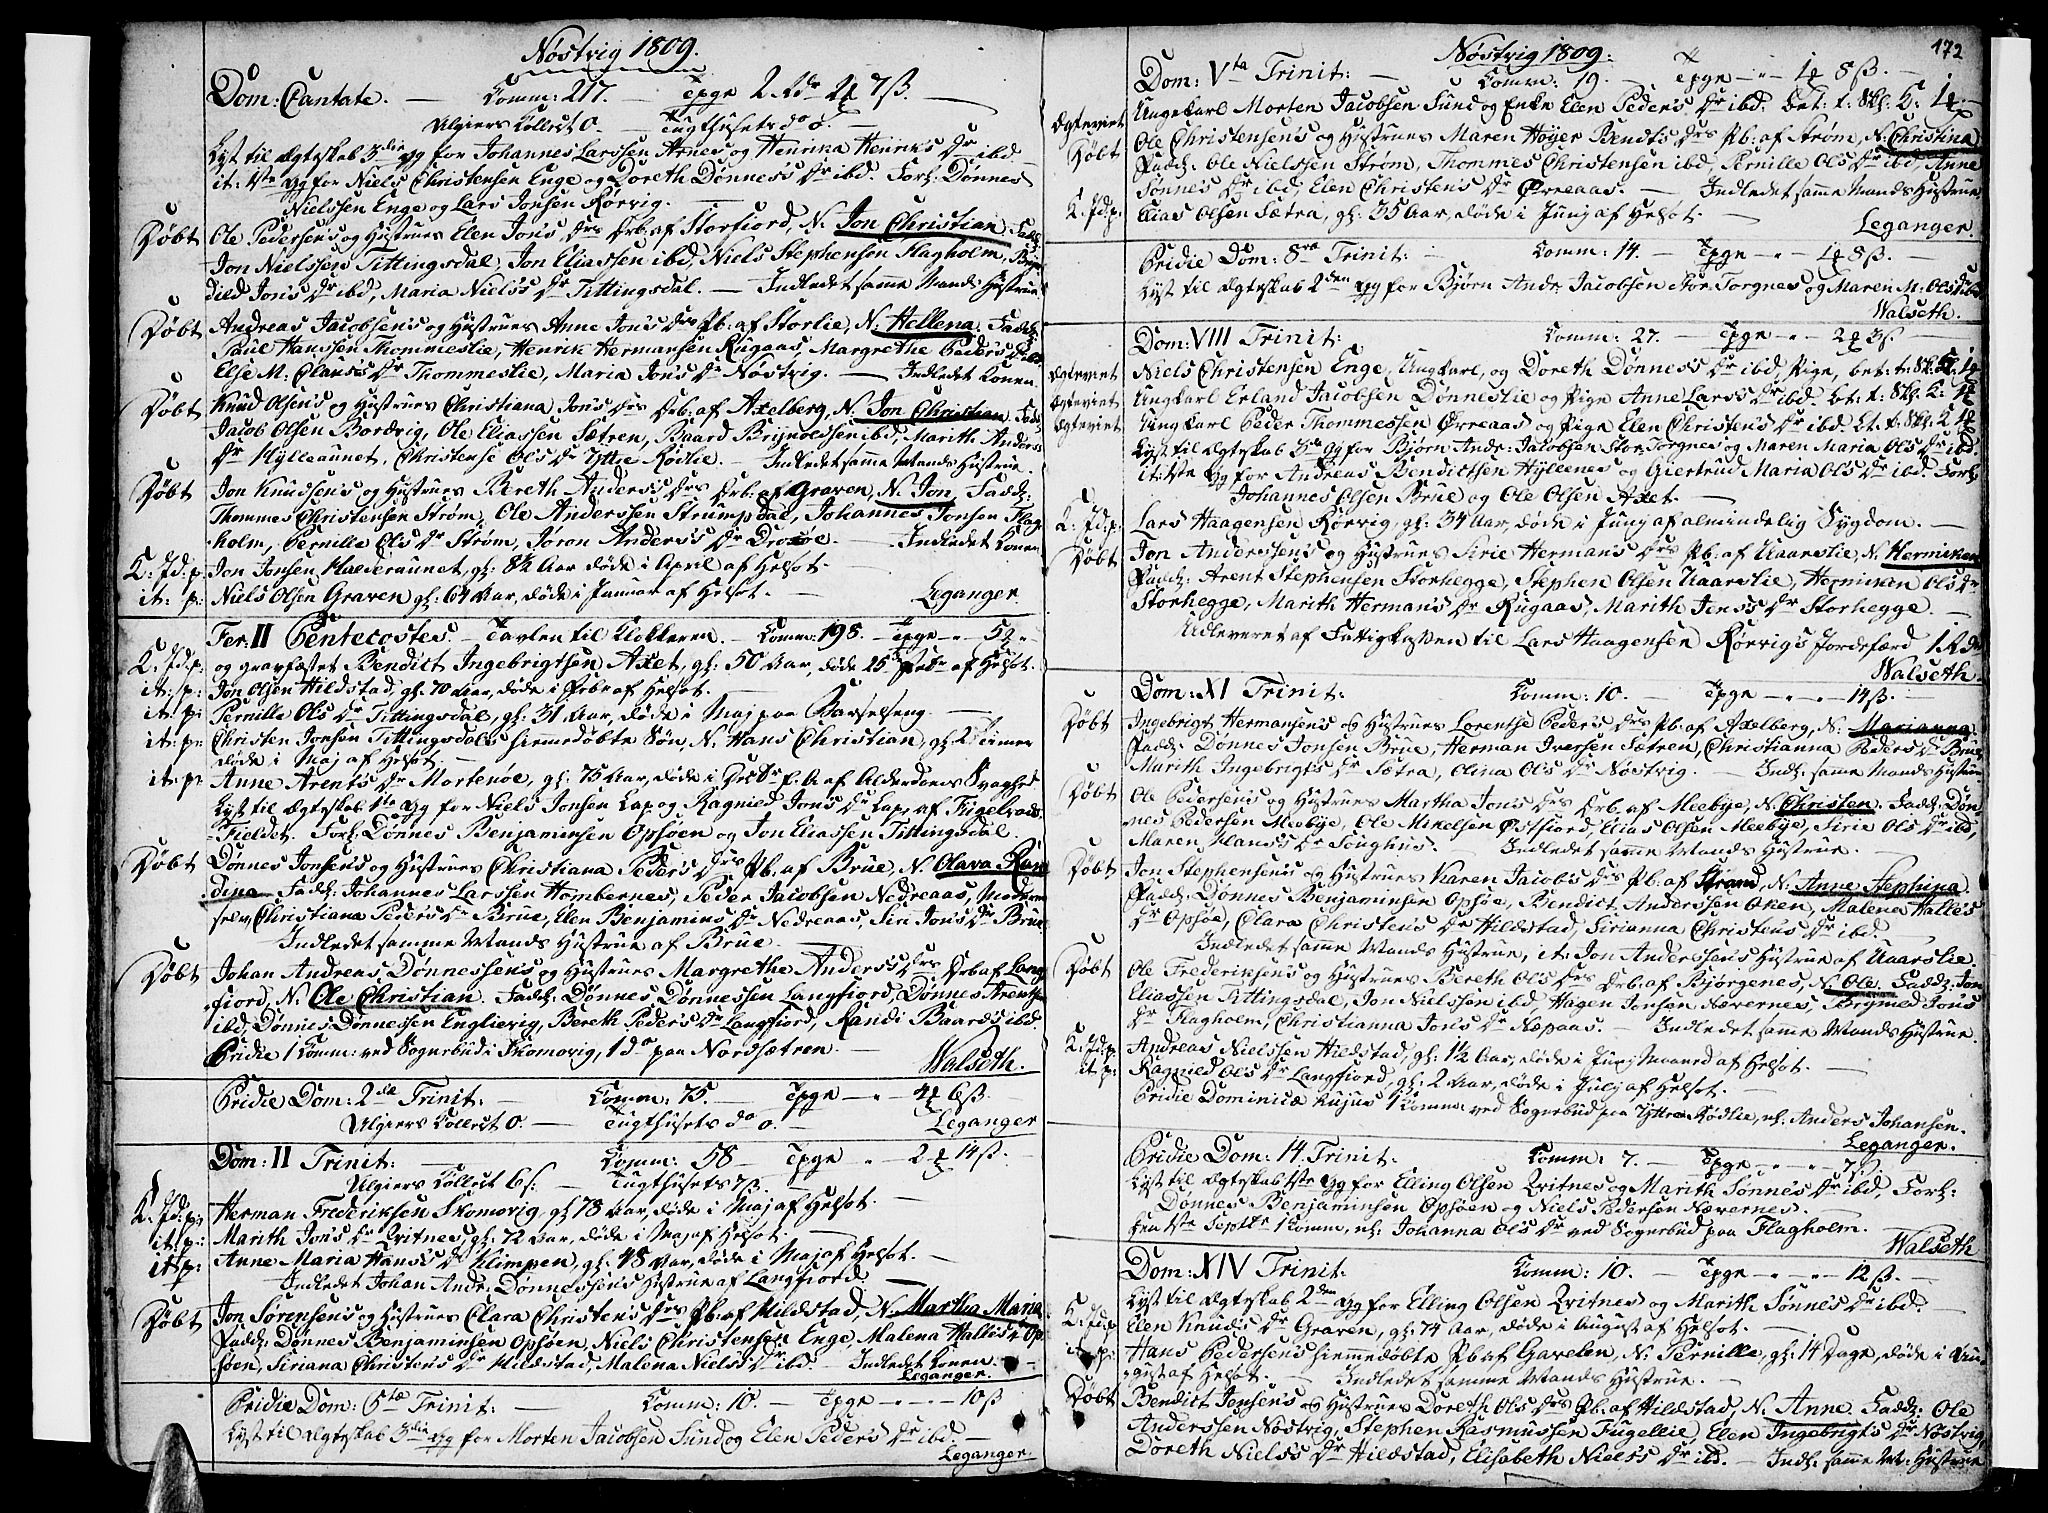 Nøstvig 1809.
Dom: Cantate. — Comm: 217. — Tpge 2 Rdr 2 ℔ 7 ß. —
Algiers Collect 0. — Tugthusets do 0. —
Lyst til Ægteskab 3die Gg for Johannes Larssen Arnes og Henrina Henrik's Dr ibd. —
it: 1ste Gg for Niels Christensen Enge og Doreth Dønnes's Dr ibd. Forl: Dønnes
Nielssen Enge og Lars Jonsen Rørvig. —
Døbt Ole Pedersen's og Hustrues Elen Jon's Drs Drb: af Storfiord, N. Jon Christian. Fadd:
Jon Nielssen Tittingsdal, Jon Eliassen ibd, Niels Stephensen Flagholm,
dild Jon's Dr ibd, Maria Niels's Dr Tittingsdal. — Indledet samme Mands Hustrue
Døbt Andreas Jacobsen's og Hustrues Anne Jon's Drs Pb: af Storlie, N: Hellena. Fadd:
Paul Hanssen Thommeslie, Henrik Hermansen Rugaas, Margrethe Peder's Dr ibd,
Else M: Claus's Dr Thommeslie, Maria Jon's Dr Nøstvig. — Indledet Konen.
Døbt Knud Olsen's og Hustrues Christiana Jon's Drs Drb: af Axelberg, N. Jon Christian. Fadd:
Jacob Olsen Bordvig, Ole Eliassen Sætren, Baard Brynoldsen ibd, Marith Anders's
Dr Hylleaunet, Christense Ols Dr Yttre Rødlie. — Indledet samme Mands Hustrue.
Døbt Jon Knudsen's og Hustrues Bereth Anders's Drs Drb: af Graven, N. Jon. Fadd:
Thommes Christensen Strøm, Ole Anderssen Strumpdal, Johannes Jonsen Flag
holm, Pernille Ols Dr Strøm, Joron Anders's Dr — Indledet Konen
K: Jd: p: Jon Jonsen Halderaunet, gl: 8½ Aar døde i April af Helsot. —
it: p: Niels Olsen Graven gl: 64 Aar, døde i Januar af Helsot. — Leganger.
Fer: II Pentecostes. — Tavlen til Klokkeren. — Comm: 198. — Tpge
K: Jd: p: og gravfæstet Bendict Ingebrigtsen Axet, gl: 50 Aar, døde 15de Febr af Helsot.
it: p: Jon Olsen Hildstad, gl: 70 Aar, døde i Febr af Helsot. —
it: p: Pernille Ols Dr Tittingsdal, gl: 31 Aar, døde i Maj paa Barselseng —
it: p: Christen Jonsen Tittingsdals hiemmedøbte Søn, N. Hans Christian, gl: 2 Timer
døde i Maj af Helsot. —
it: p: Anne Arent's Dr Mortenøe, gl: 75 Aar, døde i af Alderdoms Svaghed
Lyst til Ægteskab 1ste Gg for Niels Jonsen Lap og Ragnild Jon's Dr Lap, af
Fieldet. Forl: Dønnes Benjaminsen Opsøen og Jon Eliassen Tittingsdal.
Døbt Dønnes Jonsen's og Hustrues Christiana Peder's Drs Pb: af Brue, N. Olava Ran
dina. Fadd: Johannes Larssen Hombernes, Peder Jacobsen Nedreaas, Moderen
selv, Christiana Peder's Dr Brue, Elen Benjamins Dr Nedreaas, Siri Jon's Dr Brue
Indledet samme Mands Hustrue af Brue. —
Døbt Johan Andreas Dønnessen's og Hustrues Margrethe Anders's Drs Drb: af Lang
fiord, N. Ole Christian. Fadd: Dønnes Dønnessen Langfiord, Dønnes Arentsen
ibd, Dønnes Dønnessen Englievig, Bereth Peder's Dr Langfiord, Randi Baards ibd
Pridie 1 Comm: ved Sognebud i Skomovig, 1 do paa Nordsætren. — Walseth.
Pridie Dom: 2da Trinit: — Comm: 75. — Tpge — " 4 ℔ 6 ß. —
Algiers Collect 0. — Tugthusets do 0. — Leganger
Dom: II Trinit: — Comm: 58 — Tpge " 2 ℔ 14 ß. —
Algiers Collect 6 ß: — Tugthusets 7 ß. —
K: Jd: p: Herman Frederiksen Skomovig, gl: 78 Aar, døde i Maj af Helsot. —
it: p: Marith Jon's Dr Qvitnes, gl: 72 Aar, døde i Maj af Helsot. —
it: p: Anne Maria Hans's Dr Klimpen, gl: 48 Aar, døde i Maj af Helsot. —
Indledet Johan Andr: Dønnessen's Hustrue af Langfiord. —
Døbt Jon Sørensen's og Hustrues Clara Christens Drs Pb: af Hildstad, N. Martha Maria.
Fadd: Dønnes Benjaminsen Opsøen, Niels Christensen Enge, Malena Halles Dr Op
søen, Siriana Christens Dr Hildstad, Malena Niels's Dr ibd. — Indledet Konen. —
Leganger.
Pridie Dom: 5tæ Trinit: — Comm: 10. — Tpge — " — " — 10 ß
Lyst til Ægteskab 3die Gg for Morten Jacobsen Sund og Elen Peder's Dr ibd. —
Leganger.
Nøstvig 1809: 172
Dom: Vta Trinit: — Comm: 19. — Tpge — " — 1 ℔ 8 ß. —
Ægteviet Ungekarl Morten Jacobsen Sund og Enke Elen Peder's Dr ibd. bet: t: Skl: K: 1 ℔. —
Døbt Ole Christensen's og Hustrues Maren Høyer Bendts Drs Pb: af Strøm, N: Christina
Fadd: Ole Nielssen Strøm, Thommes Christensen ibd, Pernille Ols Dr ibd, Anne
Sønnes Dr ibd, Elen Christens Dr Ørreaas. — Indledet samme Mands Hustrue
K: Jd: p: Elias Olsen Sætra, gl: 35 Aar, døde i Junj af Helsot. —
Leganger.
Pridie Dom: 8va Trinit: — Comm: 14. — Tpge — " — 1 ℔ 8 ß. —
Lyst til Ægteskab 2den Gg for Bjørn Andr: Jacobsen Stor Torgnes og Maren M. Ols Dr ibd
Walseth.
Dom: VIII Trinit: Comm: 27. — Tpge " " 2 ℔ 3 ß. —
Ægteviet Niels Christensen Enge, Ungkarl, og Doreth Dønnes's Dr ibd, Pige, bet: t: Skl: K: 1 ℔
Ægteviet Ungkarl Erland Jacobsen Dønneslie og Pige Anne Lars's Dr ibd. bt: t: Skl: K: 1 ℔
Ægteviet Ungkarl Peder Thommessen Ørreaas og Pige Elen Christen's Dr ibd. bt: t: Skl: K 1 ℔
Lyst til Ægteskab 3die Gg for Bjørn Andr: Jacobsen Stor Torgnes og Maren Maria Ols Dr ibd.
it: 1ste Gg for Andreas Bendictsen Hyllenes og Giertrud Maria Ols Dr ibd. Forl:
Johannes Olsen Brue og Ole Olsen Axet. —
K: Jd: p: Lars Haagensen Rørvig, gl: 34 Aar, døde i Junj af almindelig Sygdom. —
Døbt Jon Anderssen's og Hustrues Sirie Herman's Drs Pb: af Uaarslie, N. Hermiken
Fadd: Arent Stephensen Storhegge, Stephen Olsen Uaarslie, Hermiken Ols Dr
Storhegge, Marith Herman's Dr Rugaas, Marith Jens's Dr Storhegge. —
Udleveret af Fattigkassen til Lars Haagensen Rørvig's Jordefærd 1 Rdr
Walseth.
Dom: XI Trinit: Comm: 10. — Tpge — " — " — 14 ß. —
Døbt Ingebrigt Hermansen's og Hustrues Lorentse Peders Drs Pb: af Axelberg, N: Marianna.
Fadd: Dønnes Jonsen Brue, Herman Iversen Sætren, Christianna Peders Dr Brue,
Marith Ingebrigts Dr Sætra, Olina Ols Dr Nøstvig. — Indl: samme Mands Hustrue
Døbt Ole Pedersen's og Hustrues Martha Jon's Drs Drb: af Meebye, N. Christen. Fadd: Døn
nes Pedersen Meebye, Ole Mikelsen Østfiord, Elias Olsen Meebye, Sirie Ols Dr ibd,
Maren Hans's Dr Songhus. — Indledet samme Mands Hustrue. —
Døbt Jon Stephensen's og Hustrues Karen Jacob's Drs Pb: af Strand, N: Anne Stephina.
Fadd: Dønnes Benjaminsen Opsøe, Bendict Anderssen Oken, Malena Halle's
Dr Opsøe, Clara Christens Dr Hildstad, Sirianna Christens Dr ibd.
Indledet samme Mands Hustrue, it: Jon Anderssens Hustrue af Uaarslie.
Døbt Ole Frederiksen's og Hustrues Bereth Ols Drs Drb: af Bjørgenes, N. Ole. Fadd: Jon
Eliassen Tittingsdal, Jon Nielssen ibd Hagen Jonsen Nævernes, Jon's
Dr Flagholm, Christianna Jon's Dr Næpaas. — Indledet same Mands Hustrue.
K: Jd: p: Andreas Nielssen Hildstad, gl: 1½ Aar, døde i Junj Maaned af Helsot. —
it: p: Ragnild Ols Dr Langfiord, gl: 2 Aar, døde i Julj af Helsot.
Pridie Dominicæ hujus 1 Comm: ved Sognebud paa Yttre Rødlie, nl: Anders Johansen.
Leganger.
Pridie Dom: 14. Trinit: Comm: 7. — Tpge — " — " — 7 ß
Lyst til Ægteskab 1ste Gg for Elling Olsen Qvitnes og Marith Sønne's Dr ibd, Forl:
Dønnes Benjaminsen Opsøen og Niels Pedersen Nævernes.
Den 1ste Septbr 1 Comm, nl: Johanna Ols Dr ved Sognebud paa Flagholm.
Walseth
Dom: XIV Trinit: Comm: 10. — Tpge — " — " — 12 ß. —
Lyst til Ægteskab 2den Gg for Elling Olsen Qvitnes og Marith Sønne's Dr ibd. —
K: Jd: p Elen Knuds Dr Graven, gl: 74 Aar, døde i August af Helsot. —
it: p: Hans Pedersens hiemmedøbte Pb: af Gavelen, N: Pernille, gl: 14 Dage, døde i Au
gust af Helsot. — Indledet samme Mands Hustrue. —
Døbt Bendict Jonsen's og Hustrues Doreth Ols Drs Pb: af Hildstad, N. Anne. Fadd: Ole
Anderssen Nøstvig, Stephen Rasmussen Fugellie, Elen Ingebrigts Dr Nøstvig,
Doreth Niels's Dr Hildstad, Elisabeth Niels's Dr ibd. — Indl: samme M: Hustrue